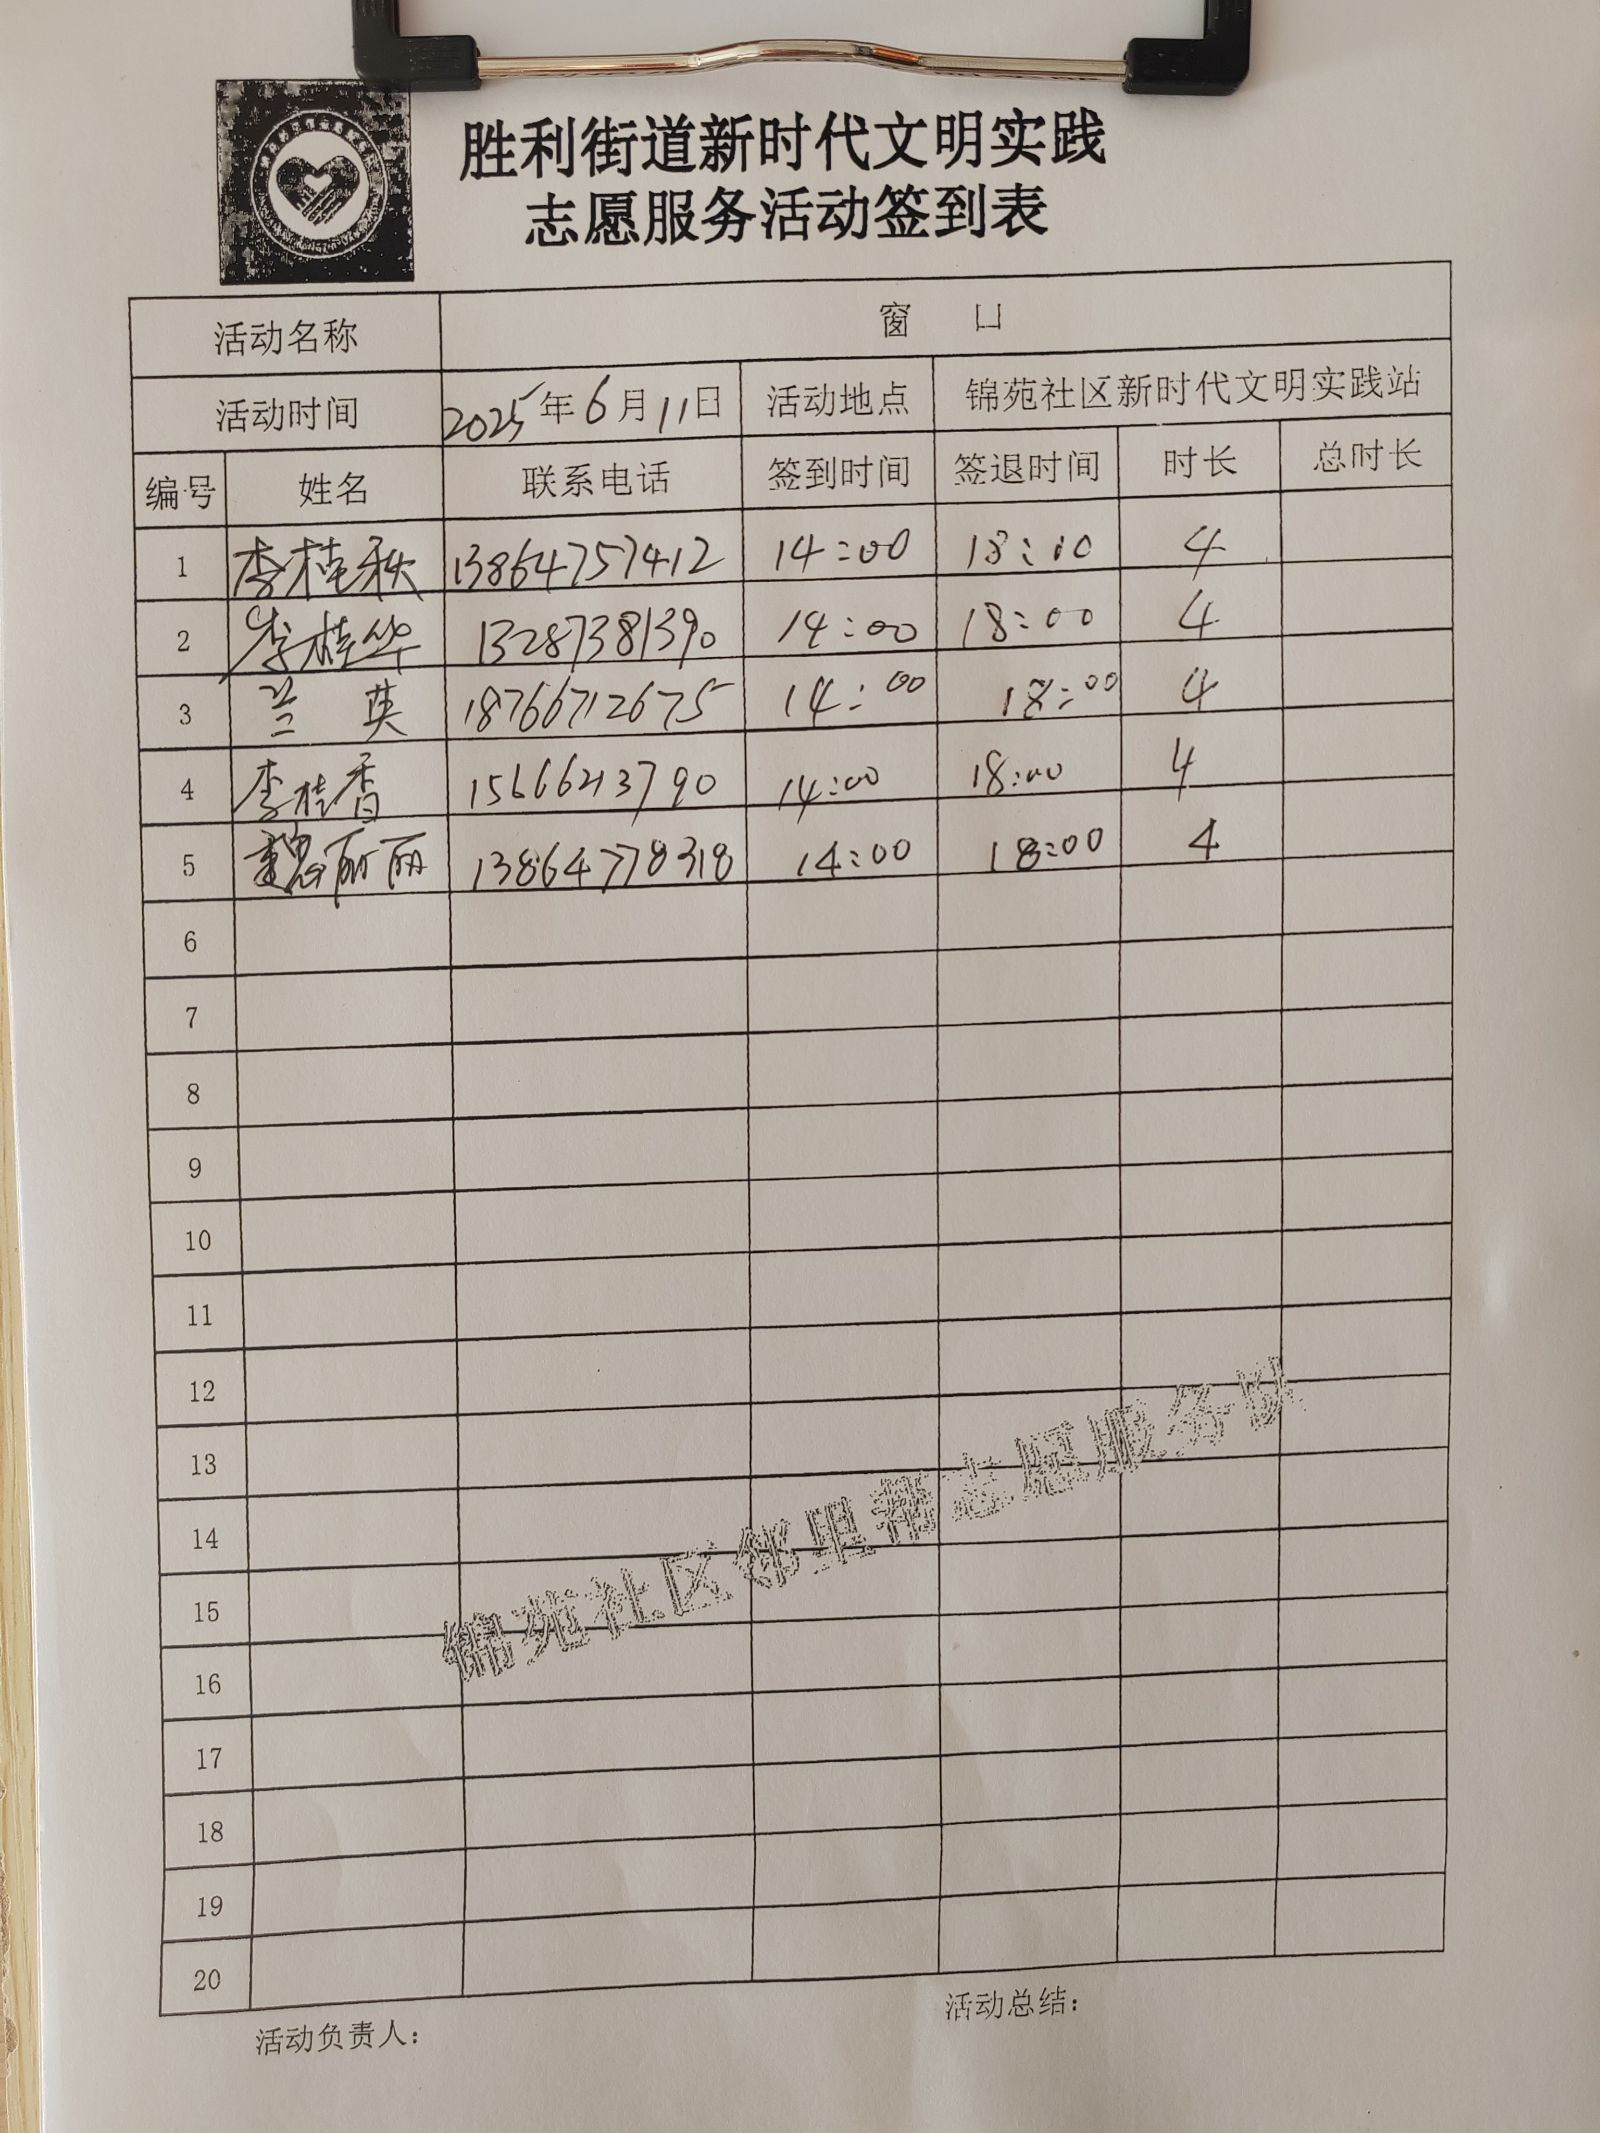 胜利街道新时代文明实践
志愿服务活动签到表
活动名称 窗 口
活动时间 2025年6月11日 活动地点 锦苑社区新时代文明实践站
编号 姓名 联系电话 签到时间 签退时间 时长 总时长
1 李桂秋 13864757412 14:00 18:00 4
2 李桂华 13287381390 14:00 18:00 4
3 兰英 18766712675 14:00 18:00 4
4 李桂香 15666213790 14:00 18:00 4
5 魏丽丽 13864778318 14:00 18:00 4
6
7
8
9
10
11
12
13
14
15
16
17
18
19
20
锦苑社区邻里帮志愿服务队
活动负责人： 活动总结：